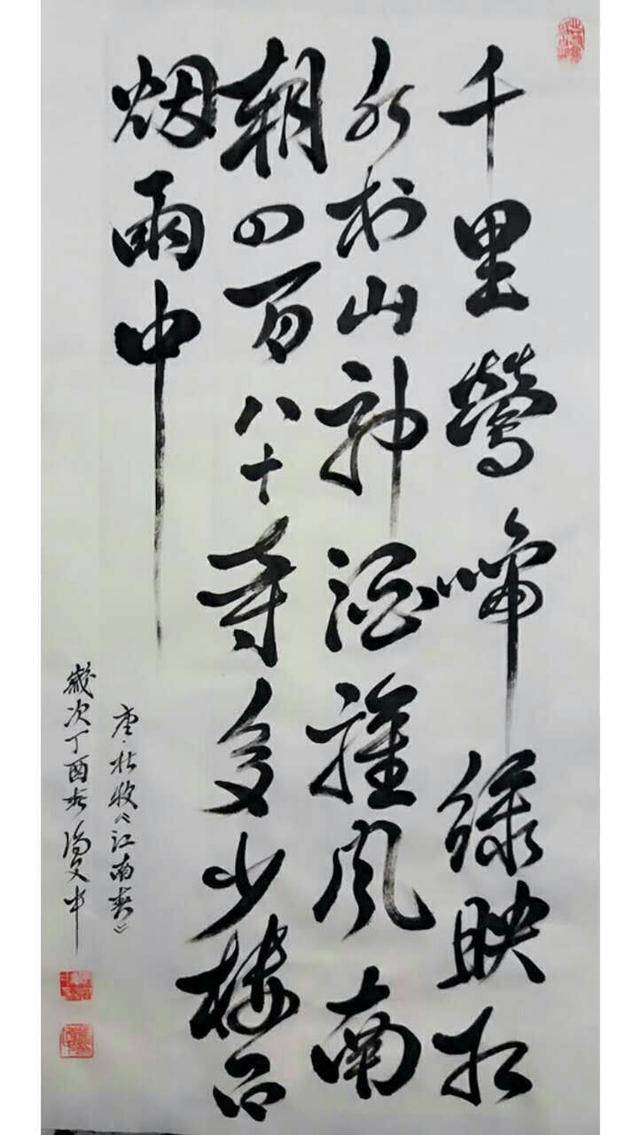 千里鶯啼绿映红
水村山郭酒旗风南
朝四百八十寺多少楼台
烟雨中
唐·杜牧《江南春》
歲次丁酉春